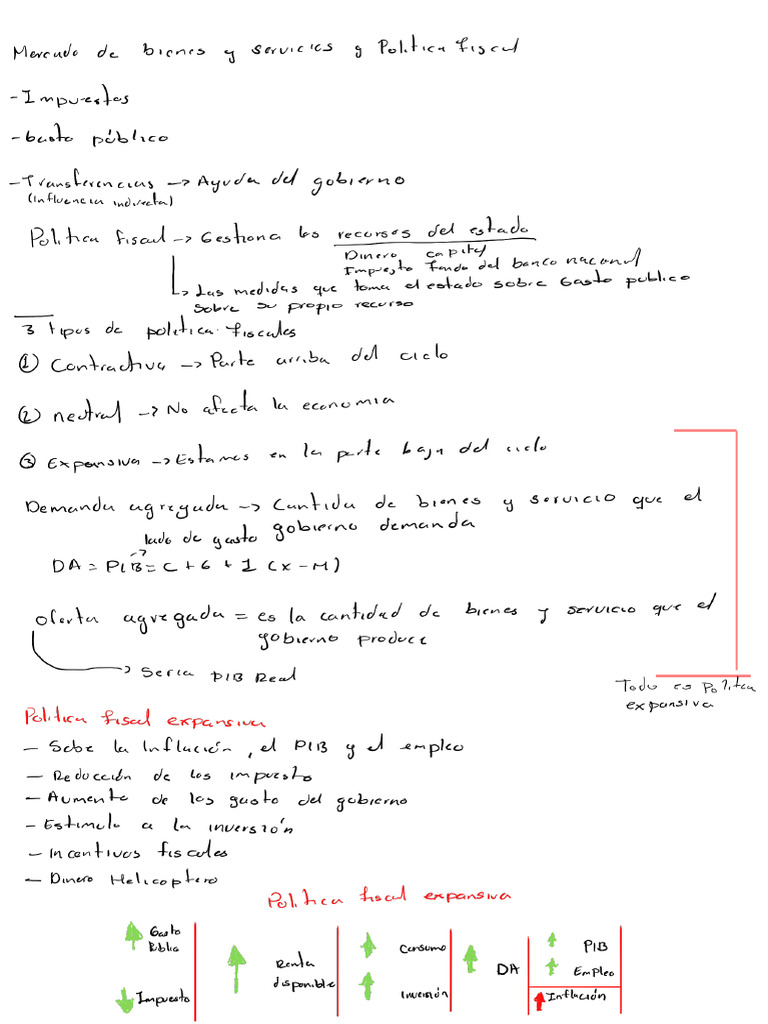 Mercado de bienes y servicios y Politica fiscal
- Impuestos
- Gasto público
- Transferencias -> Ayuda del gobierno
(Influencia indirecta)
Politica fiscal -> Gestiona los recursos del estado
Dinero capital
Impuesto fondo del banco nacional
-> Las medidas que toma el estado sobre Gasto publico
sobre su propio recurso
3 tipos de politica fiscales
① Contractiva -> Parte arriba del ciclo
② neutral -> No afecta la economia
③ Expansiva -> Estamos en la parte baja del ciclo
Demanda agregada -> Cantida de bienes y servicio que el
lado de gasto gobierno demanda
DA = PIB = C + G + I (x - M)
oferta agregada = es la cantidad de bienes y servicio que el
gobierno produce
-> Seria PIB Real
Todo es Politca
expansiva
Politica fiscal expansiva
- Sube la Inflación, el PIB y el empleo
- Reducción de los impuesto
- Aumento de los gasto del gobierno
- Estimulo a la inversión
- Incentivos fiscales
- Dinero Helicoptero
Politica fiscal expansiva
Gasto
Impuesto
Renta
disponible
Consumo
Inversión
DA
PIB
Empleo
Inflación